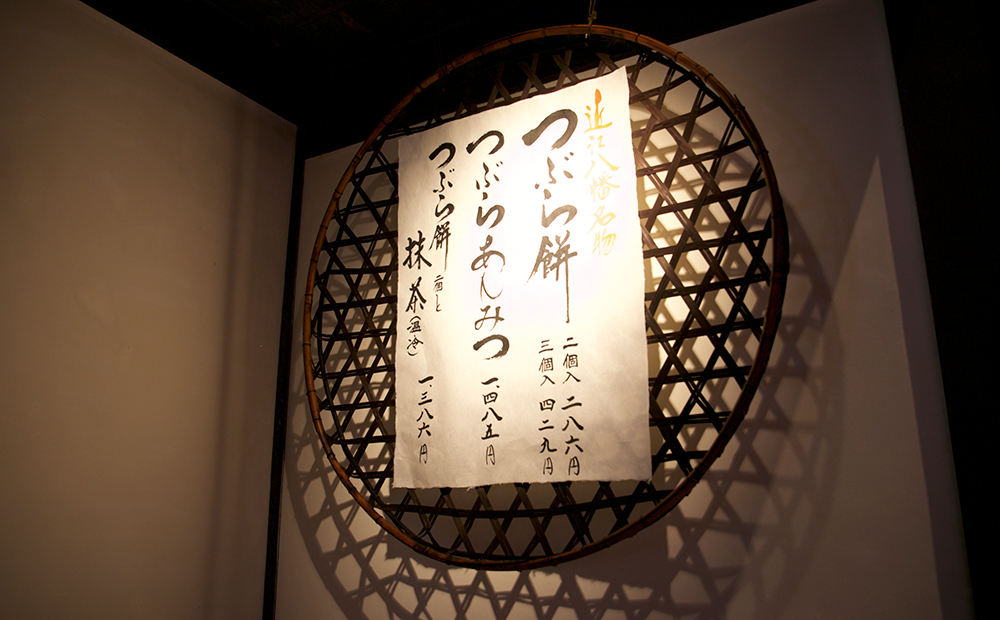 近江八幡名物
つぶら餅
二個入 二八六円
三個入 四二九円
つぶらあんみつ
一、四八五円
つぶら餅 二個と
抹茶(温冷)
一、三八六円